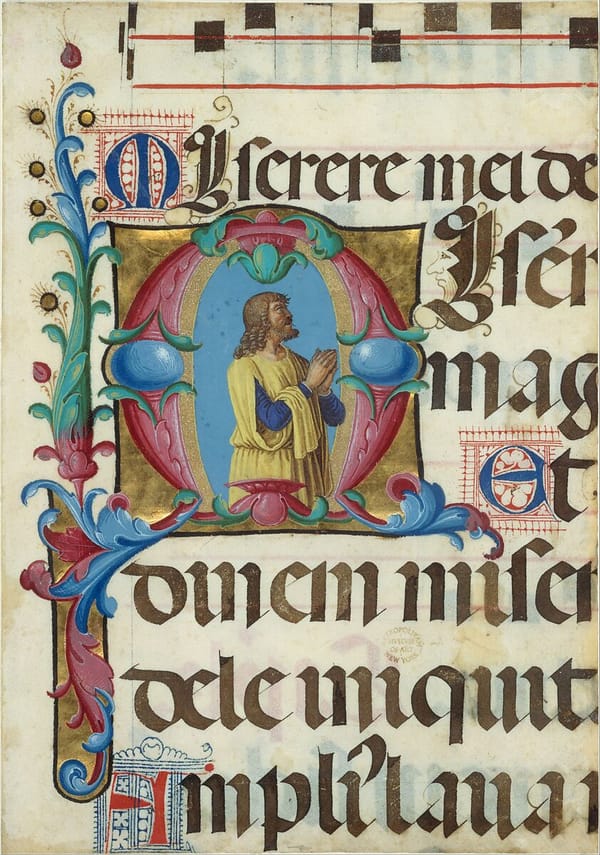 Miserere mei de
MIser
mag
Et
dinem miser
dele iniquit
Ampliꝰ laua
METROPOLITAN
MUSEUM
OF ART
NEW YORK